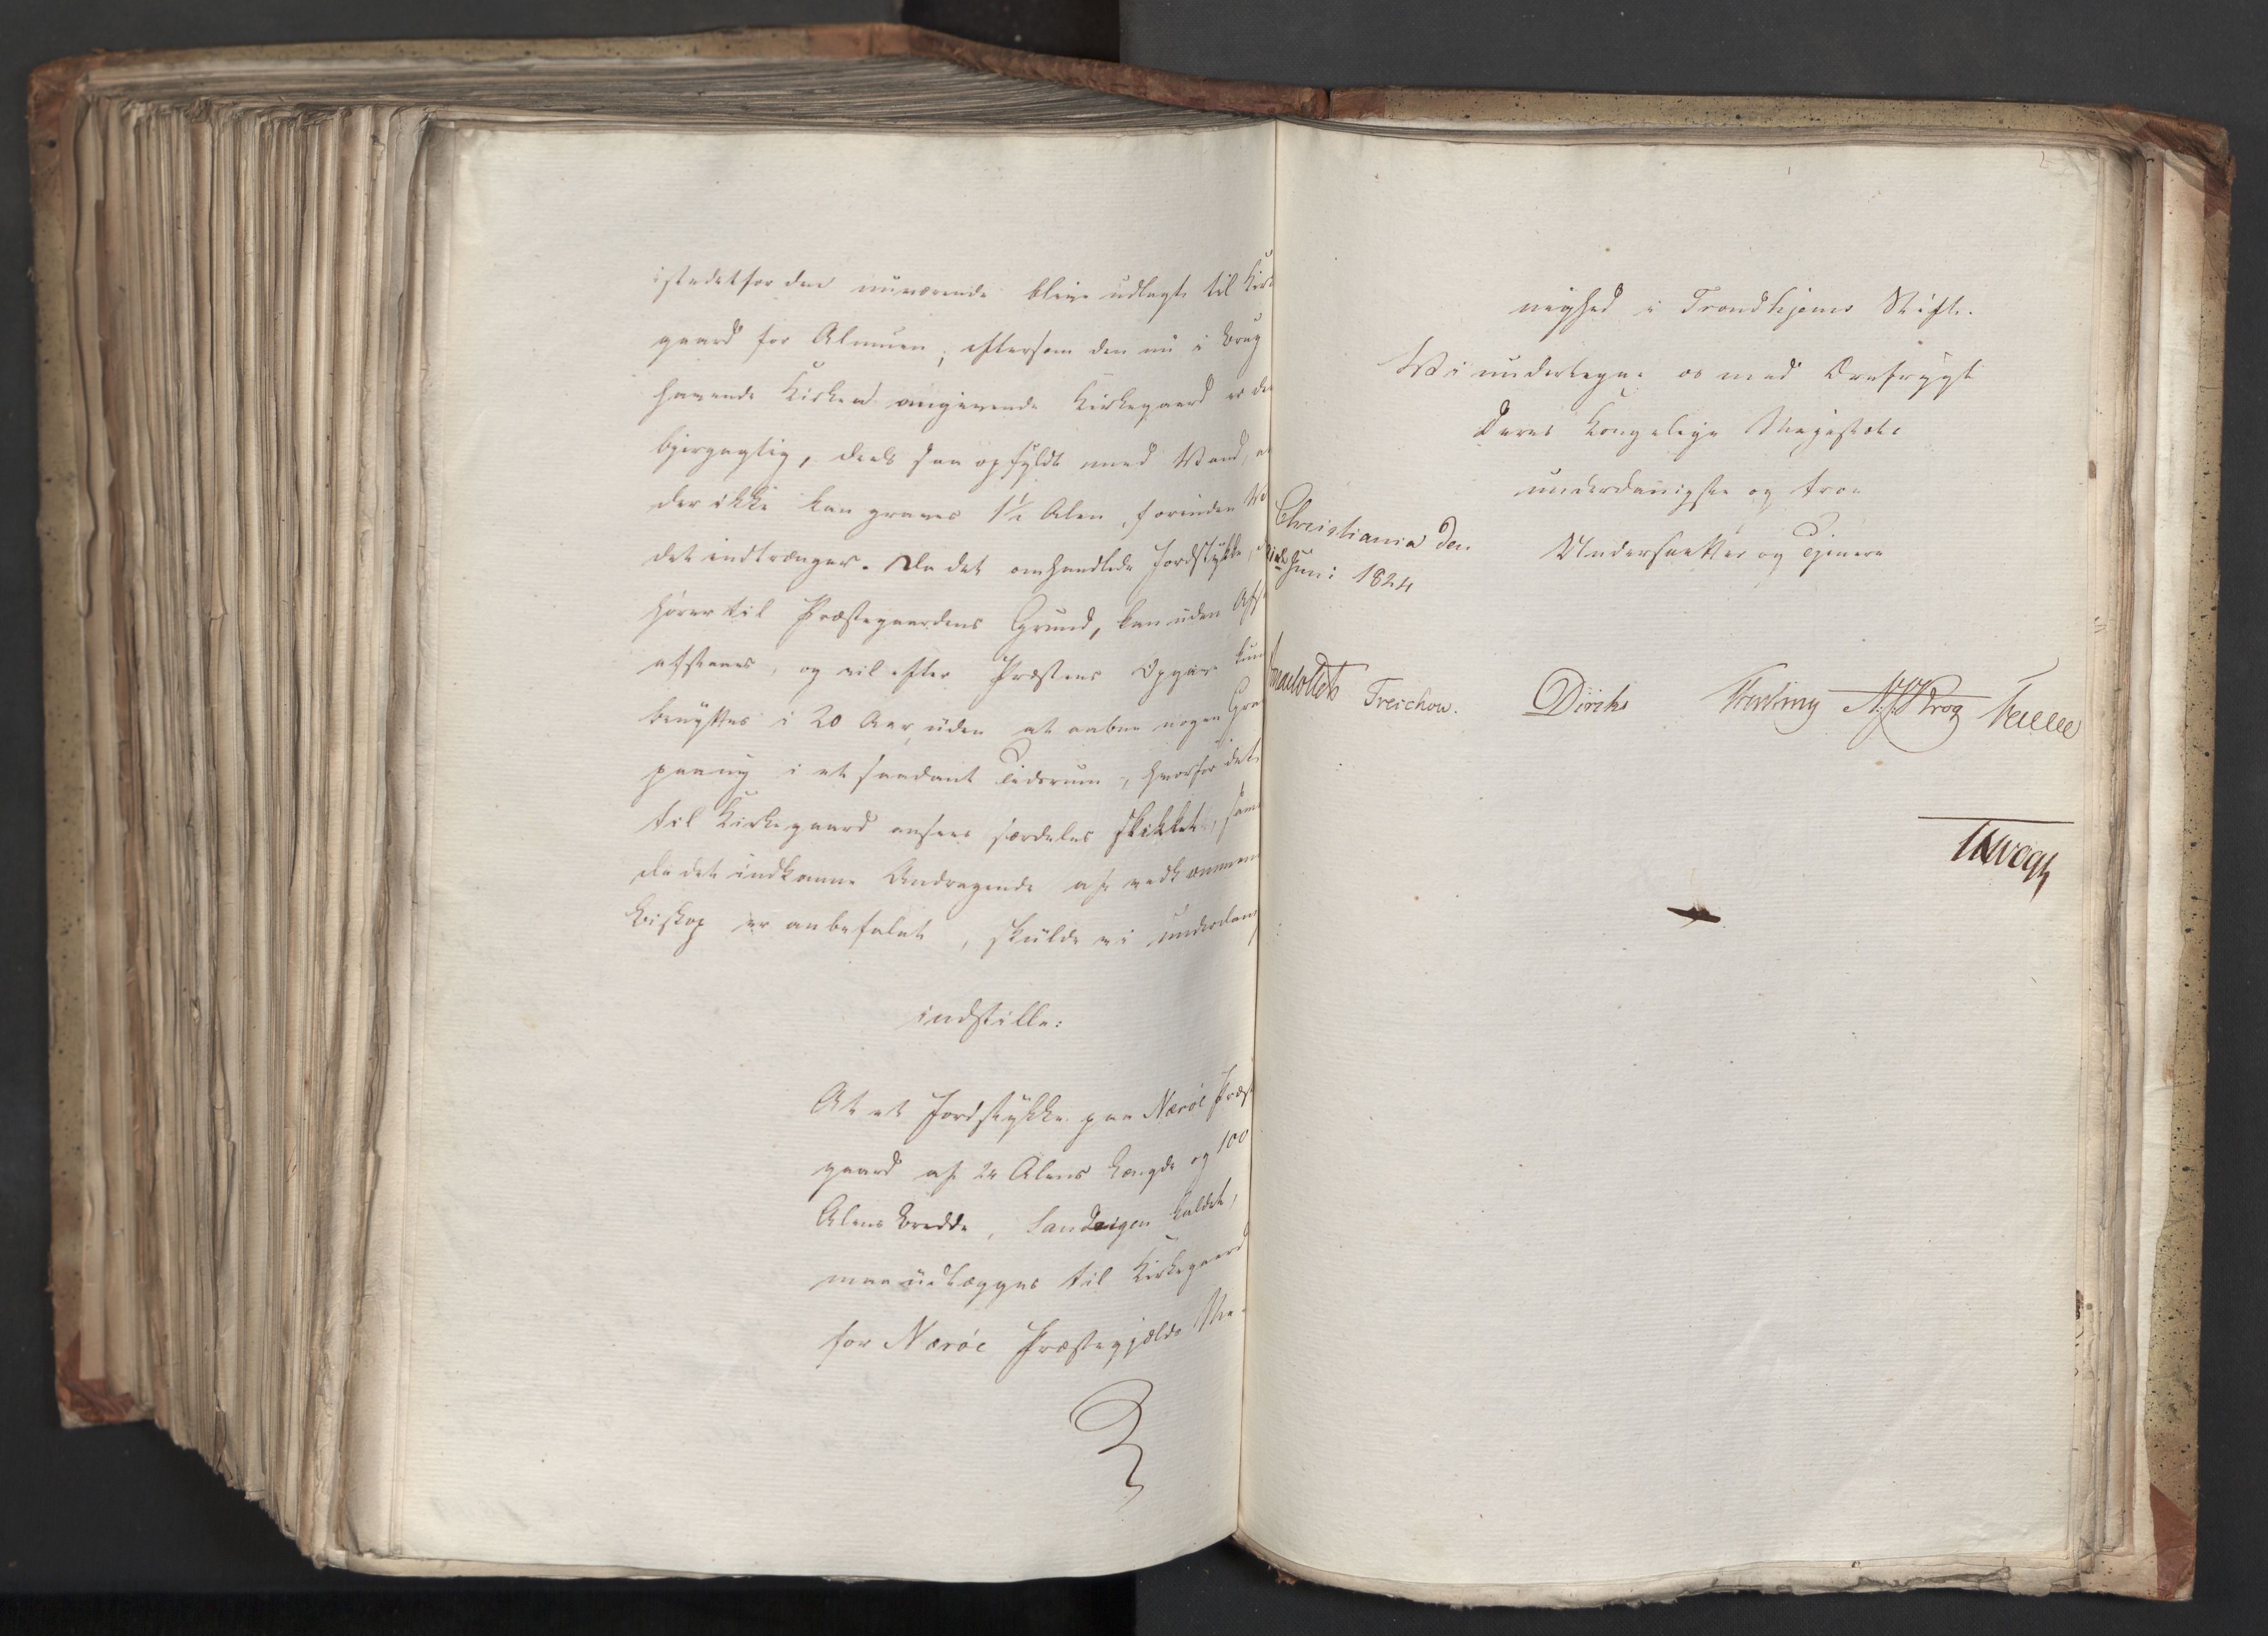 istedetfor den nuværende blive udlagt til Kir
gaard for Almuen, eftersom den nu i Brug
havende Kirken omgivende Kirkegaard er de
bjergagtig, deels saa opfyldt med Vand, at
der ikke kan graves 1½ Alen, forinden Va
det indtrænger. Da det omhandlede Jordstykke,
hører til Præstegaardens Grund, kan uden Afs
afstaaes, og vil efter Præstens Opgave kun
benyttes i 20 Aar, uden at aabne nogen Gra
paany i et saadant Tidsrum, hvorfor det
til Kirkegaard ansees særdeles skikket, sam
da det indkomne Andragende af vedkommen
Biskop er anbefalet, skulde vi underdan
indstille:
At et Jordstykke paa Nærøe Præst
gaard af 24 Alens Længde og 100
Alens Bredde, Sandeigen kaldet,
maa udlægges til Kirkegaard
for Nærøe Præstegjelds Me-
nighed i Trondhjems Stift.
Vi undertegne os med Ærefrygt
Deres Kongelige Majestæts
underdanigste og troe
Undersaatter og Tjenere
Christiania den
Juni 1824
Treschow. Diriks N. J. Krog